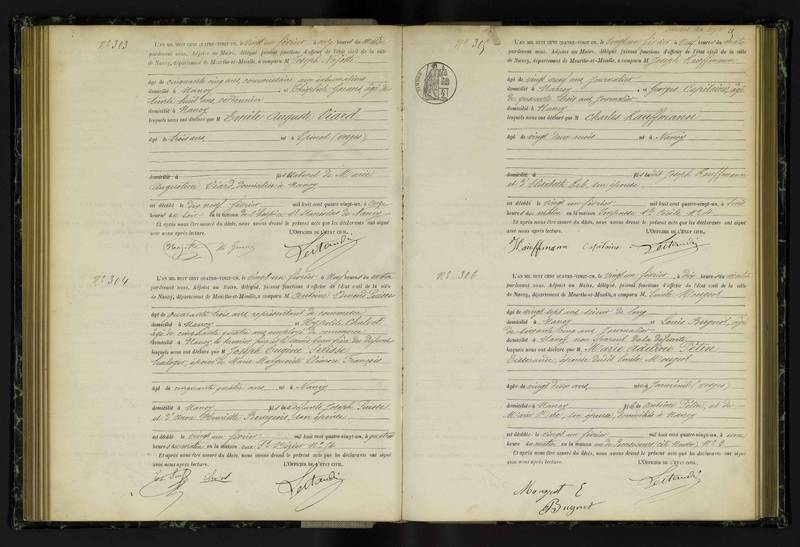 N° 303
L'AN MIL HUIT CENT QUATRE-VINGT-UN, le vingt un février, à onze heures du matin
pardevant nous, Adjoint au Maire, délégué faisant fonctions d'officier de l'état civil de la ville
de Nancy, département de Meurthe-et-Moselle, a comparu M Joseph
âgé de cinquante cinq ans, commissaire aux inhumations
domicilié à Nancy, et Elisabeth Girard, âgé de
trente huit ans, cordonnier
domicilié à Nancy
lesquels nous ont déclaré que M Emile Auguste Viard
âgé de trois ans né à Epinal (Vosges)
domicilié à fils naturel de Marie
Augustine Viard, domiciliée à Nancy
est décédé le dix neuf février mil huit cent quatre-vingt-un, à onze
heures du soir en la maison de l'hospice St Stanislas de Nancy
Et après nous être assuré du décès, nous avons dressé le présent acte que les déclarants ont signé
avec nous après lecture. L'OFFICIER DE L'ÉTAT CIVIL,
N° 304
L'AN MIL HUIT CENT QUATRE-VINGT-UN, le vingt un février à neuf heures du matin
pardevant nous, Adjoint au Maire, délégué, faisant fonctions d'officier de l'état civil de la ville
de Nancy, département de Meurthe-et-Moselle, a comparu M
âgé de quarante trois ans, représentant de commerce
domicilié à Nancy et Hypolite
âgé de cinquante quatre ans employé de commerce
domicilié à Nancy, le premier
lesquels nous ont déclaré que M Joseph Eugène
horloger, époux de Marie Marguerite François
âgé de cinquante quatre ans né à Nancy
domicilié à Nancy fils de défunts Joseph
et d'Anne Henriette Bourgeois, son épouse
est décédé le vingt un février mil huit cent quatre-vingt-un, à quatre
heures du matin en la maison rue St Nizier N° 14
Et après nous être assuré du décès, nous avons dressé le présent acte que les déclarants ont signé
avec nous après lecture. L'OFFICIER DE L'ÉTAT CIVIL,
N° 305
L'AN MIL HUIT CENT QUATRE-VINGT-UN, le vingt un février à neuf heures du matin
pardevant nous, Adjoint au Maire, délégué faisant fonctions d'officier de l'état civil de la ville
de Nancy, département de Meurthe-et-Moselle, a comparu M Joseph Kauffmann
âgé de vingt neuf ans, journalier
domicilié à Nancy et Georges Capitaine, âgé
de quarante trois ans, journalier
domicilié à Nancy
lesquels nous ont déclaré que M Charles Kauffmann
âgé de vingt deux mois né à Nancy
domicilié à fils dudit Joseph Kauffmann
et d'Elisabeth Erb, son épouse
est décédé le vingt un février mil huit cent quatre-vingt-un, à trois
heures du matin en la maison impasse Ste Cécile N° 4
Et après nous être assuré du décès, nous avons dressé le présent acte que les déclarants ont signé
avec nous après lecture. L'OFFICIER DE L'ÉTAT CIVIL,
Kauffmann Capitaine
N° 306
L'AN MIL HUIT CENT QUATRE-VINGT-UN, le vingt un février à dix heures du matin
pardevant nous, Adjoint au Maire, délégué, faisant fonctions d'officier de l'état civil de la ville
de Nancy, département de Meurthe-et-Moselle, a comparu M Emile Mougeot
âgé de vingt sept ans, scieur de long
domicilié à Nancy et Louis Bugnot, âgé
de soixante cinq ans, journalier
domicilié à Nancy, non parent de la défunte
lesquels nous ont déclaré que M Marie Adeline Pétin
épouse dudit Emile Mougeot
âgé de vingt deux ans née à (Vosges)
domiciliée à Nancy fille de Antoine Pétin, et de
Marie son épouse, domiciliés à Nancy
est décédée le vingt un février mil huit cent quatre-vingt-un, à une
heure du matin en la maison rue de N° 9
Et après nous être assuré du décès, nous avons dressé le présent acte que les déclarants ont signé
avec nous après lecture. L'OFFICIER DE L'ÉTAT CIVIL,
Mougeot E
Bugnot